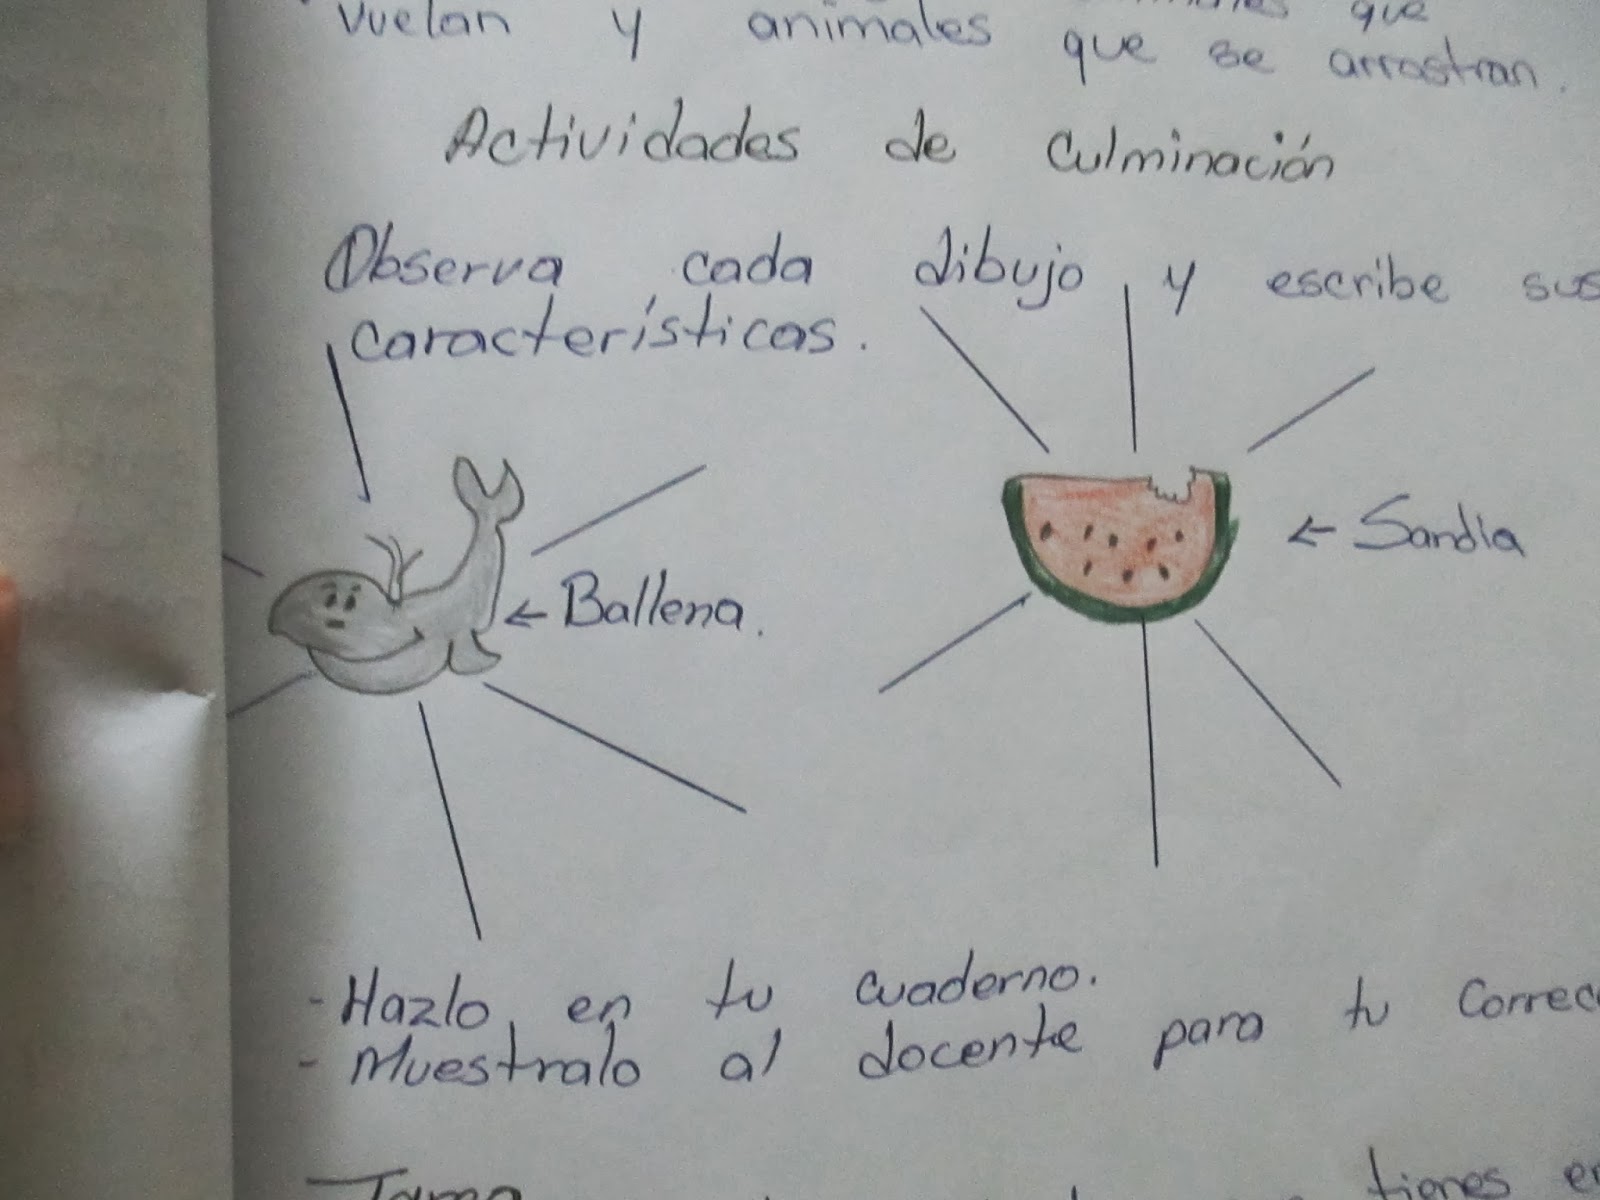 vuelan y animales que se arrastran.
Actividades de Culminación
Observa cada dibujo y escribe sus
características.
← Sandía
← Ballena.
- Hazlo en tu cuaderno.
- Muestralo al docente para tu
tienes